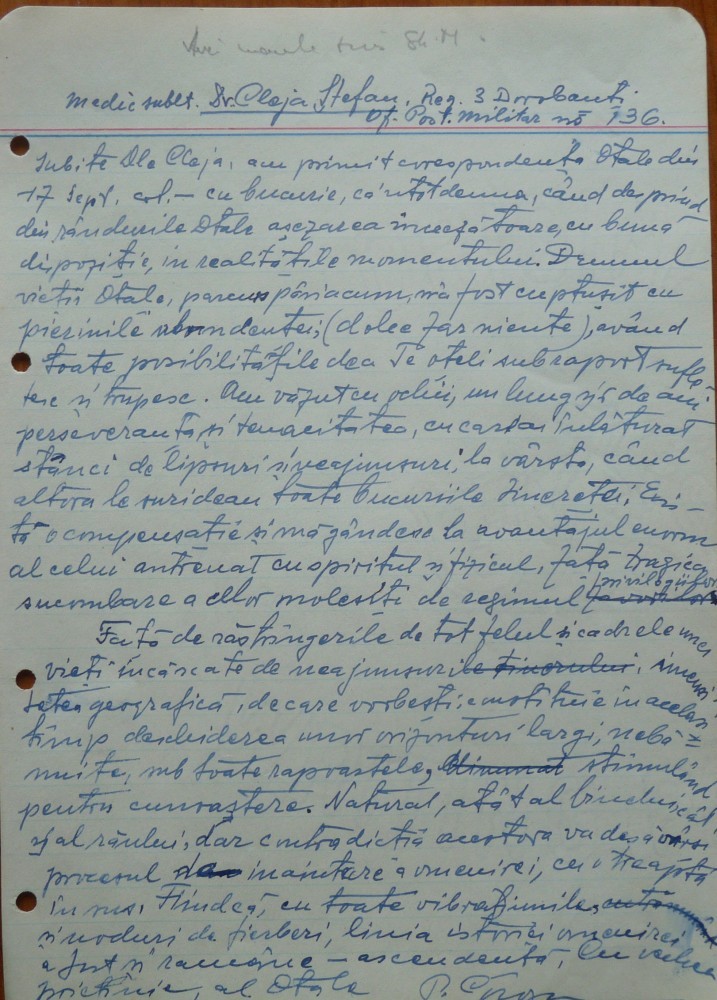 Medic sublt. Dr. Cleja Stefan, Reg. 3 Dorobanti
Of. Post. militar nō 136.
Iubite Dle Cleja, am primit corespondenta Dtale din
17 Sept. crt. – cu bucurie, ca întotdeauna, când desprind
din rândurile Dtale asezarea cu buna
dispozitie, in realitătile momentului. Drumul
vietii Dtale, parcurs până acum, n'a fost captusit cu
pernite abundente; (dolce far niente), având
toate posibilitătile de a Te oteli sub raport sufle-
tesc si trupesc. Am văzut cu ochii, un lung sir de ani
perseverenta si tenacitatea, cu care ai înlăturat
stânci de lipsuri si neajunsuri, la vârsta, când
altora le surideau toate bucuriile tineretei; Exis-
tă o compensatie si mă gândesc la avantajul enorm
al celui antrenat cu spiritul si fizicul, fată tragica
sucombare a celor molesiti de regimul privilegiilor
Fată de răstringerile de tot felul si cadrele unei
vieti încăscate de neajunsurile tinutului,
geografică, de care vorbesti; constitue in acelasi
timp deschiderea unor orizonturi largi, nebă-
nuite, sub toate rapoartele, stimulând
pentru cunoastere. Natural, atât al binelui cât
si al răului, dar contradictia acestora va desăvârsi
procesul inaintare a omenirei, cu o treaptă
în sus. Fiindcă, cu toate vibratiunile
si noduri de fierberi, linia istoriei omenirei
a fost si rămâne – ascendentă, Cu veche
prietenie, al Dtale P.